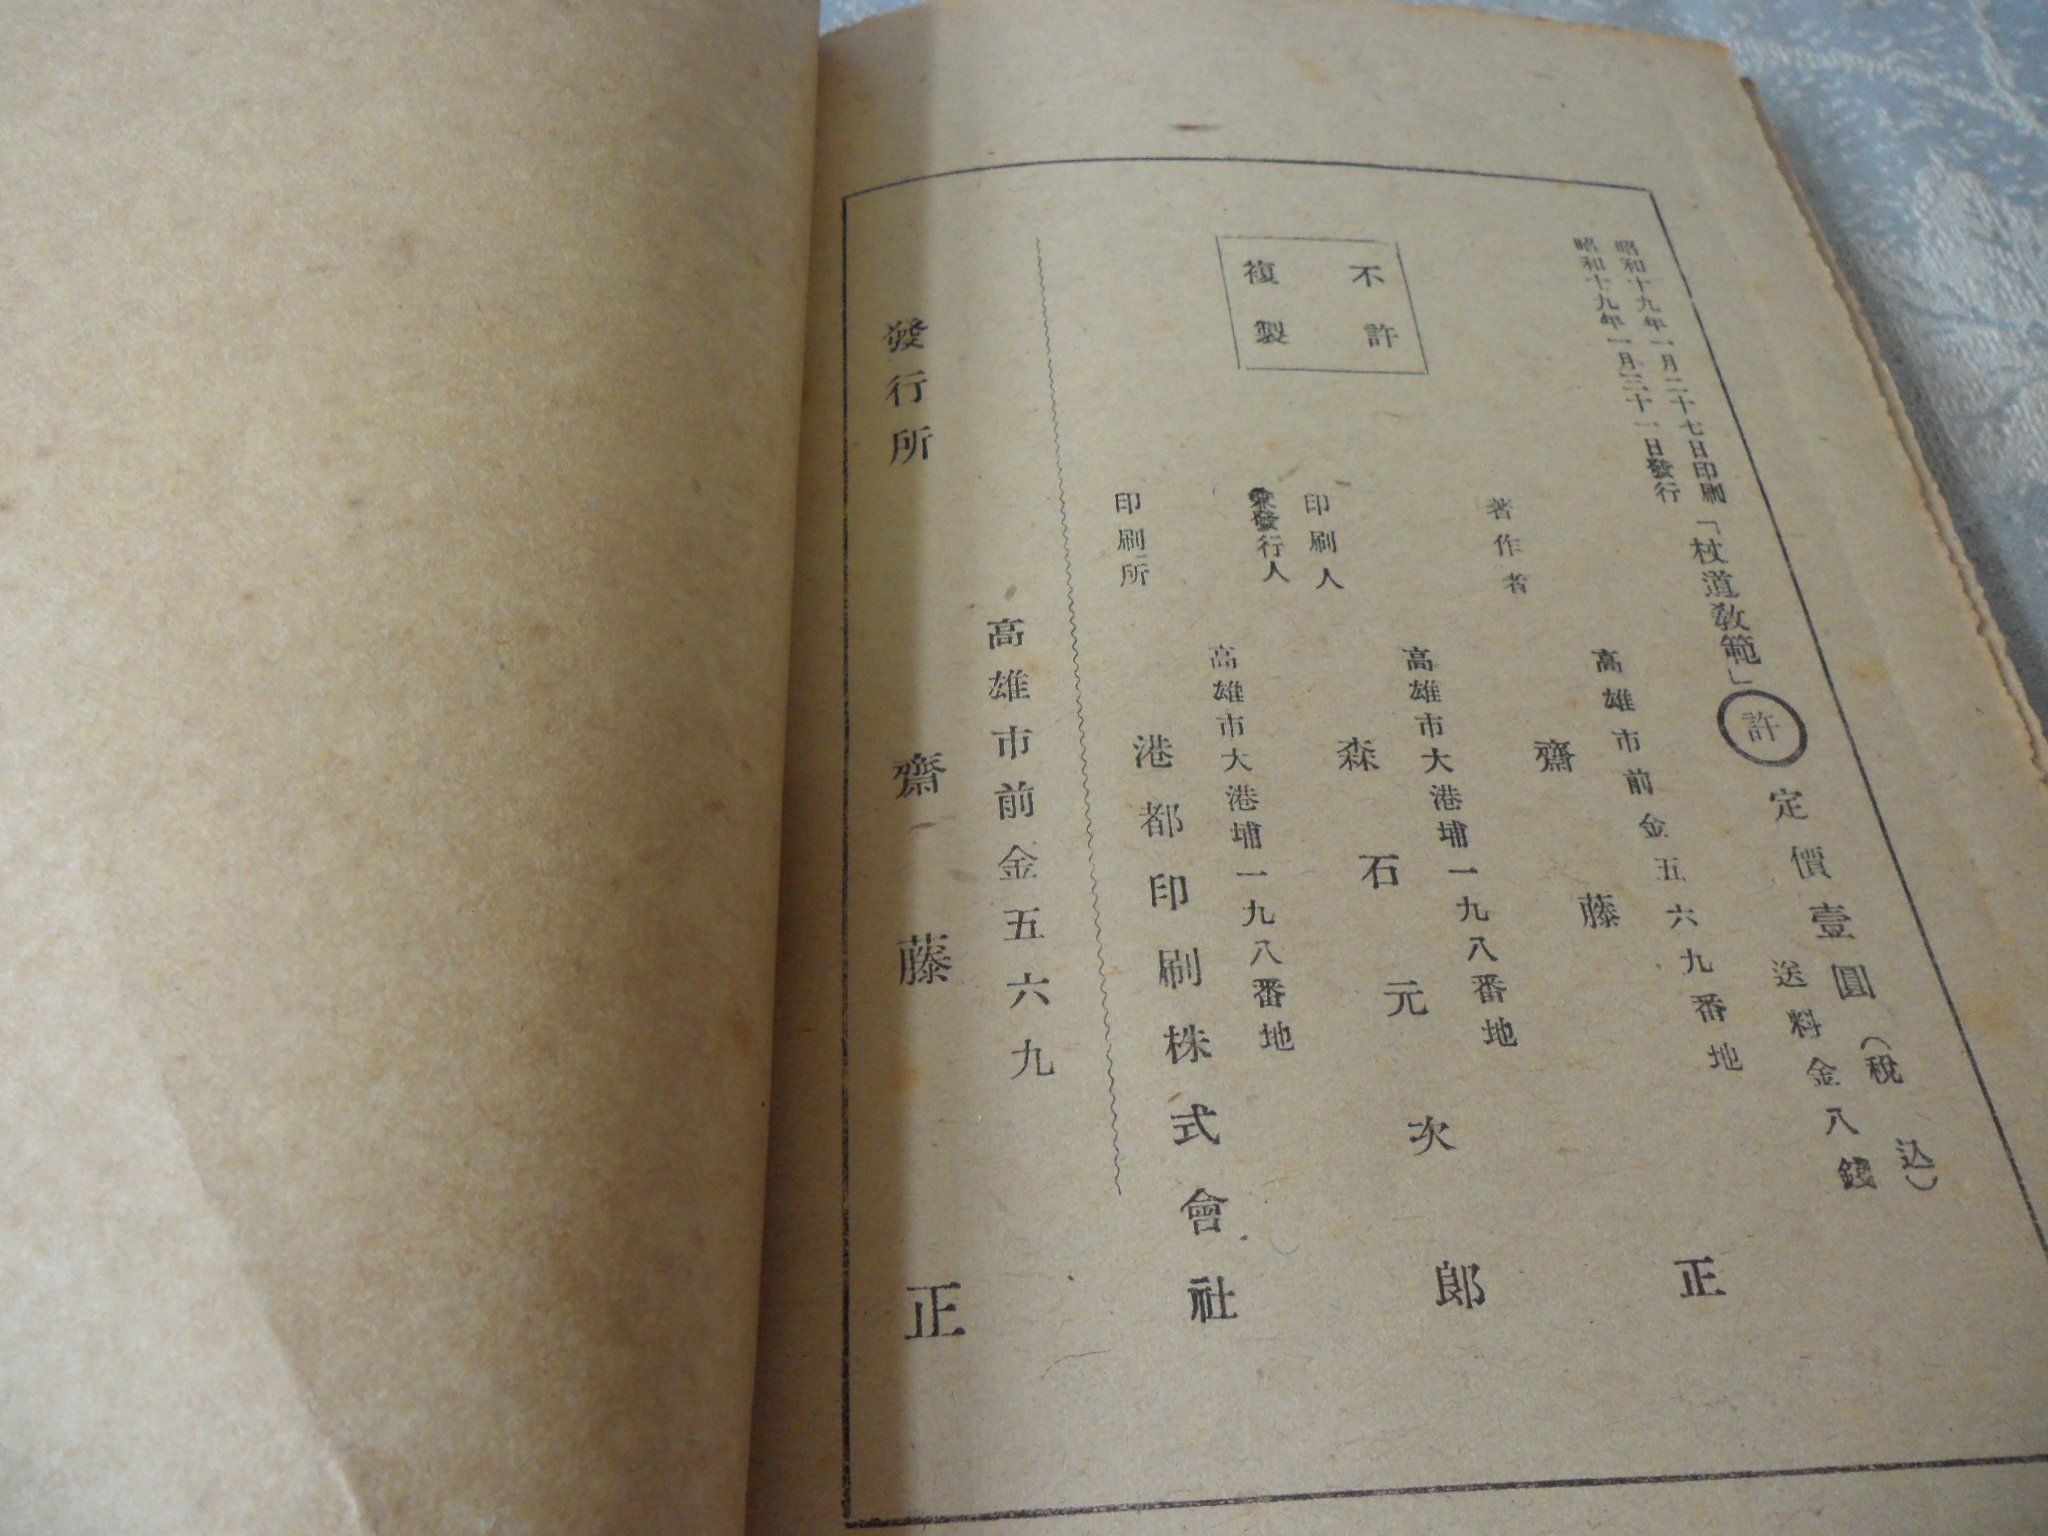 昭和十九年一月二十七日印刷
昭和十九年一月三十一日發行
「杖道敎範」
許
定價壹圓(稅込)
送料金八錢
不許
複製
著作者
高雄市前金五六九番地
齋藤正
印刷人
兼發行人
高雄市大港埔一九八番地
森石元次郎
印刷所
高雄市大港埔一九八番地
港都印刷株式會社
發行所
高雄市前金五六九
齋藤正